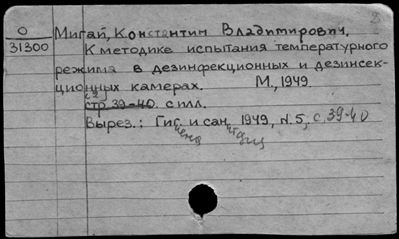 О
31300
Мигай, Константин Владимирович.
К методике испытания температурного
режима в дезинфекционных и дезинсек-
ционных камерах. М., 1949
стр. 39-40. с илл.
Вырез.: Гиг. и сан. 1949, N. 5, с. 39-40